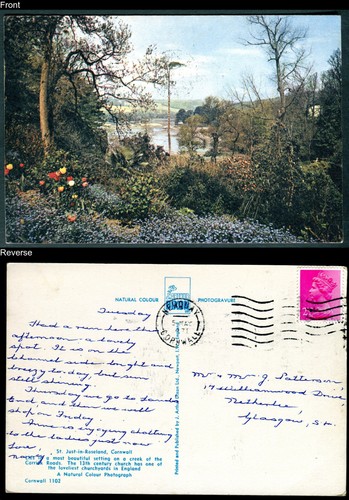 Front
Reverse
NATURAL COLOUR
PHOTOGRAVURE
Tuesday
Had a run here this
afternoon a lovely
spot. It is on the
channel side, bright and
breezy to-day, but sun
still shining.
Thursday we go to Lands
End, and then
on Friday.
is enjoying chatting
to the ladies just now
Love,
St. Just-in-Roseland, Cornwall
a most beautiful setting on a creek of the
Carrick Roads. The 13th century church has one of
the loveliest churchyards in England
A Natural Colour Photograph
Cornwall 1102
Printed and Published by J. Arthur Dixon Ltd., Newport,
NEWQUAY
CORNWALL
Mr & Mrs J. Patterson
17
Drive
Netherlee
Glasgow, S.4.